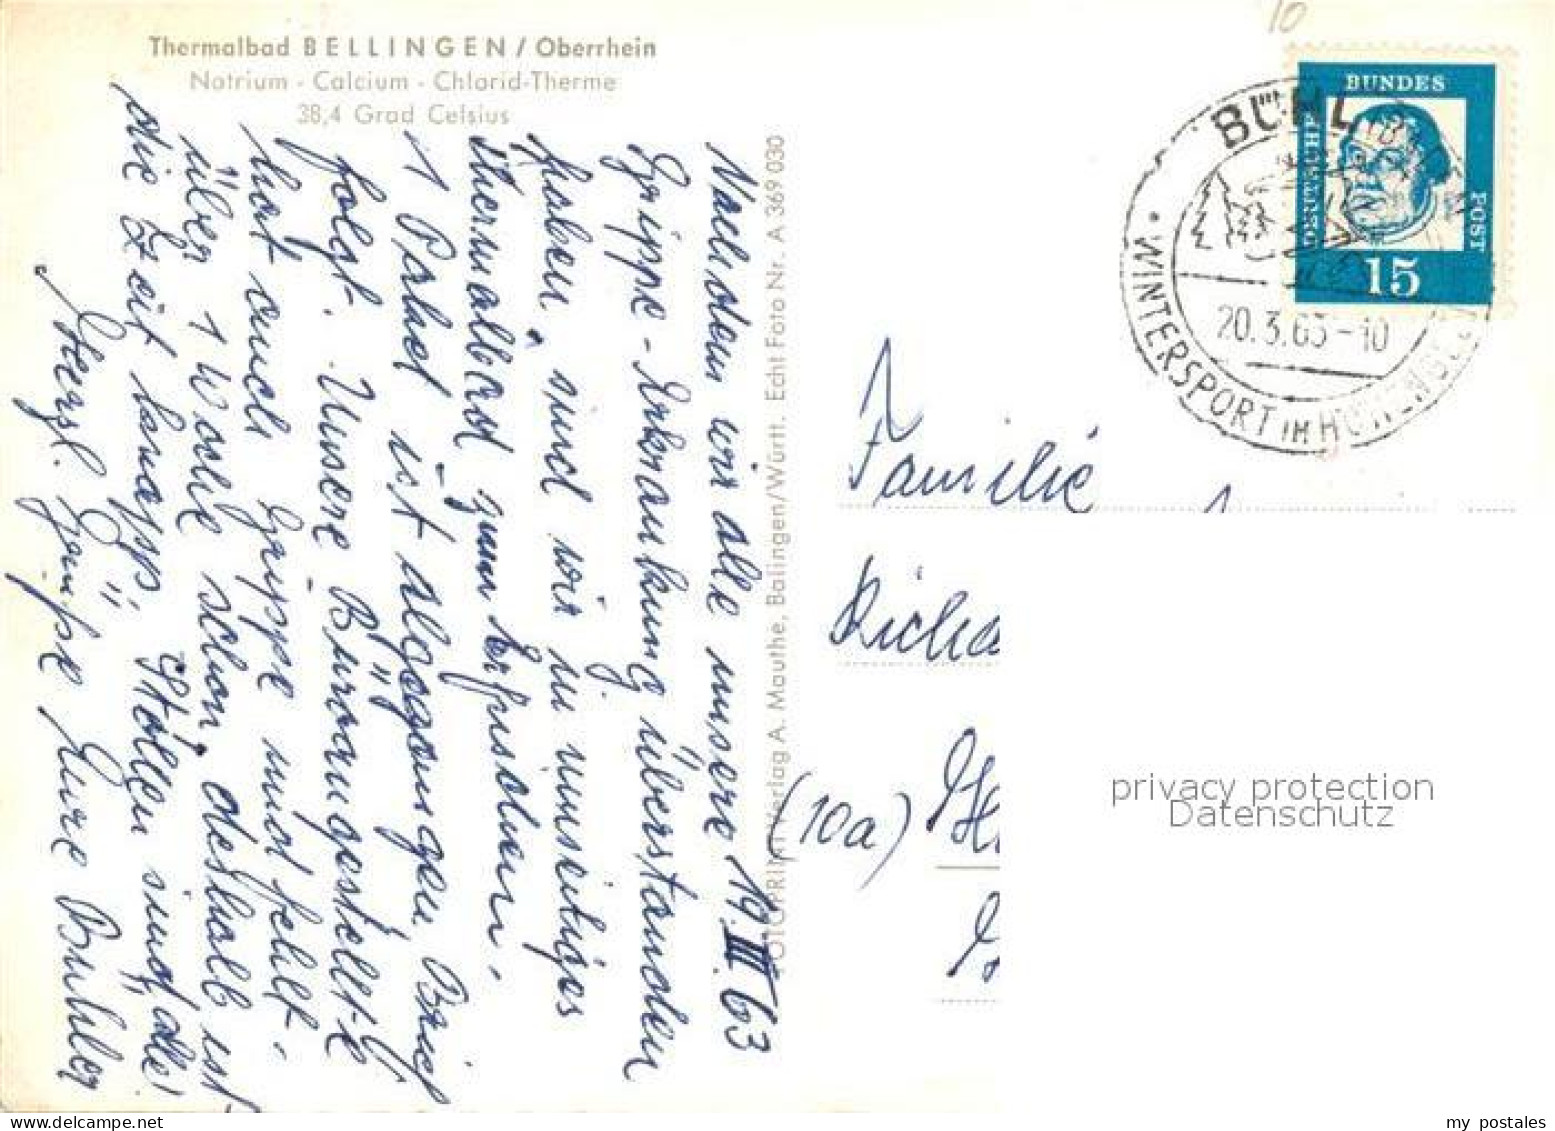 Thermalbad BELLINGEN / Oberrhein
Natrium - Calcium - Chlorid-Therme
38,4 Grad Celsius
19.III 63
Nachdem wir alle unsere
Grippe-Erkrankung überstanden
haben, sind wir in umseitiges
Thermalbad zum Erholen.
1 Paket ist abgegangen, Brief
folgt. Unsere Büroangestellte
hat auch Grippe und fehlt
über 1 Woche schon, deshalb ist
die Zeit knapp.
Herzl. Grüße Eure
FOTOPRINT-Verlag A. Mauthe, Balingen/Württ. Echt Foto Nr. A 369 030
10
BUNDES
POST
DEUTSCHE
15
BÜHL (BADEN)
20.3.63-10
WINTERSPORT IM HUNDSECK
Familie
Richa
(10a)
privacy protection
Datenschutz
my postales